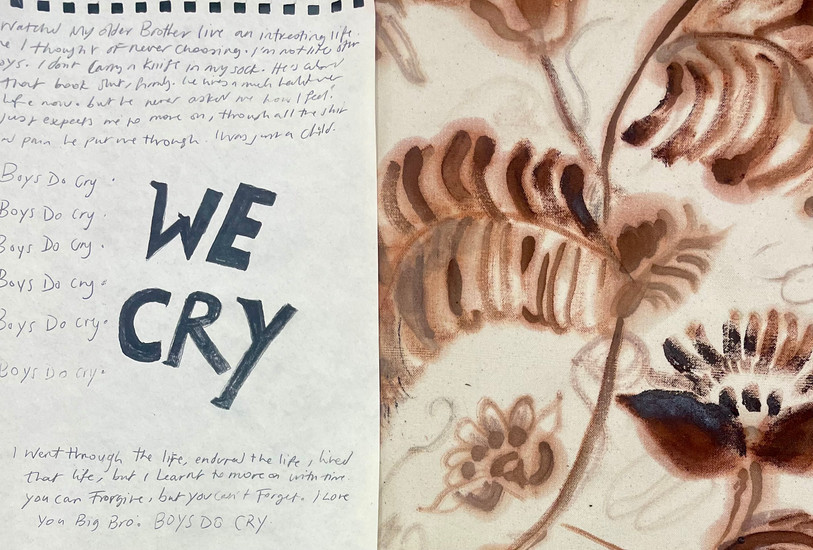 Watched My older Brother live an intresting life.
I thought of never choosing. I'm not life other
boys. I dont Carry a Knife in my sock. He's
that book shit, firmly. he lives a much
Life now. but he never asked me how I feel!
Just expects me to move on, through all the shit
pain he put me through. I was just a child.
Boys Do Cry.
Boys Do Cry.
Boys Do Cry.
Boys Do Cry.
Boys Do Cry.
Boys Do Cry.
WE
CRY
I went through the life, endured the life, lived
that life, but I learnt to move on with time.
you can Frorgive, but you can't Forget. I Love
You Big Bro. BOYS DO CRY